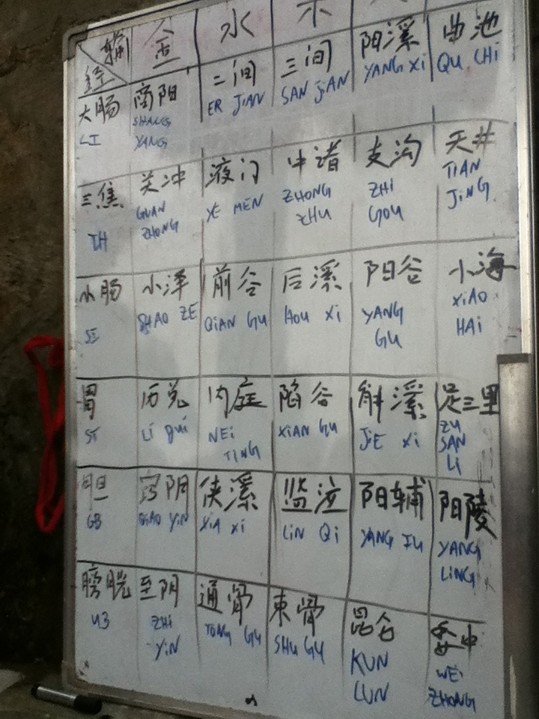 输 金 水 木
经
大肠 商阳 二间 三间 阳溪 曲池
LI SHANG YANG ER JIAN SAN JIAN YANG XI QU CHI
三焦 关冲 液门 中诸 支沟 天井
TH GUAN ZHONG YE MEN ZHONG ZHU ZHI GOU TIAN JING
小肠 小泽 前谷 后溪 阳谷 小海
SI SHAO ZE QIAN GU HOU XI YANG GU XIAO HAI
胃 历兑 内庭 陷谷 解溪 足三里
ST LI DUI NEI TING XIAN GU JIE XI ZU SAN LI
胆 窍阴 侠溪 临泣 阳辅 阳陵
GB QIAO YIN XIA XI LIN QI YANG FU YANG LING
膀胱 至阴 通骨 束骨 昆仑 委中
UB ZHI YIN TONG GU SHU GU KUN LUN WEI ZHONG